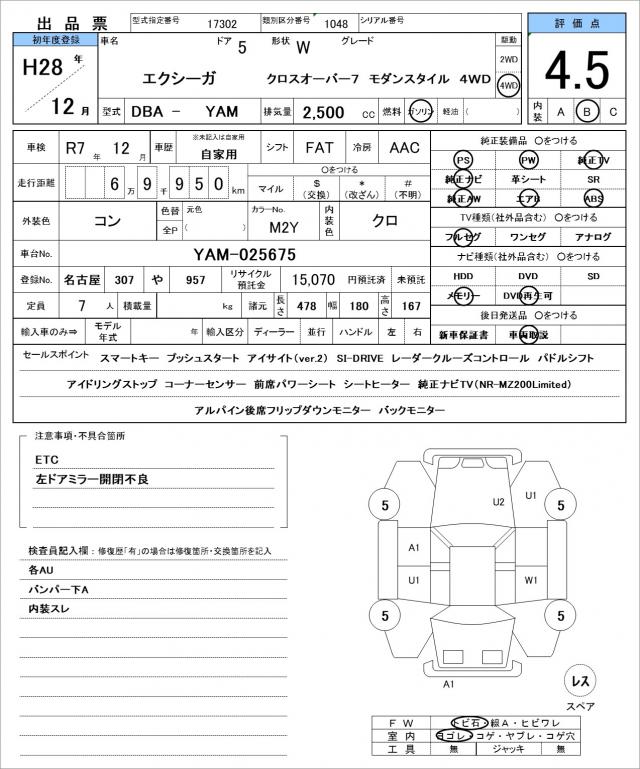 出品票 型式指定番号 17302 類別区分番号 1048 シリアル番号
評価点
4.5
内装 A B C
初年度登録
H28 年
12 月
車名 ドア 5 形状 W グレード 駆動
エクシーガ クロスオーバー7 モダンスタイル 4WD 2WD 4WD
型式 DBA - YAM 排気量 2,500 cc 燃料 ガソリン 軽油 ( )
車検 R7 年 12 月 車歴 ※未記入は自家用 自家用 シフト FAT 冷房 AAC
走行距離 6 万 9 千 9 5 0 km ○をつける
マイル $ (交換) * (改ざん) # (不明)
外装色 コン 色替 元色 全P ( ) カラーNo. M2Y 内装色 クロ
車台No. YAM-025675
登録No. 名古屋 307 や 957 リサイクル預託金 15,070 円預託済 未預託
定員 7 人 積載量 kg 諸元 長さ 478 幅 180 高さ 167
輸入車のみ⇒ モデル年式 年 輸入区分 ディーラー 並行 ハンドル 左 右
純正装備品 ○をつける
PS PW 純正TV
純正ナビ 革シート SR
純正AW エアB ABS
TV種類(社外品含む) ○をつける
フルセグ ワンセグ アナログ
ナビ種類(社外品含む) ○をつける
HDD DVD SD
メモリー DVD再生可
後日発送品 ○をつける
新車保証書 車両取説
セールスポイント スマートキー プッシュスタート アイサイト(ver.2) SI-DRIVE レーダークルーズコントロール パドルシフト
アイドリングストップ コーナーセンサー 前席パワーシート シートヒーター 純正ナビTV(NR-MZ200Limited)
アルパイン後席フリップダウンモニター バックモニター
注意事項・不具合箇所
ETC
左ドアミラー開閉不良
検査員記入欄：修復歴「有」の場合は修復箇所・交換箇所を記入
各AU
バンパー下A
内装スレ
U2 U1
5 5
A1
U1 W1
5 5
A1
レス
スペア
FW トビ石・線A・ヒビワレ
室内 ヨゴレ・コゲ・ヤブレ・コゲ穴
工具 無 ジャッキ 無